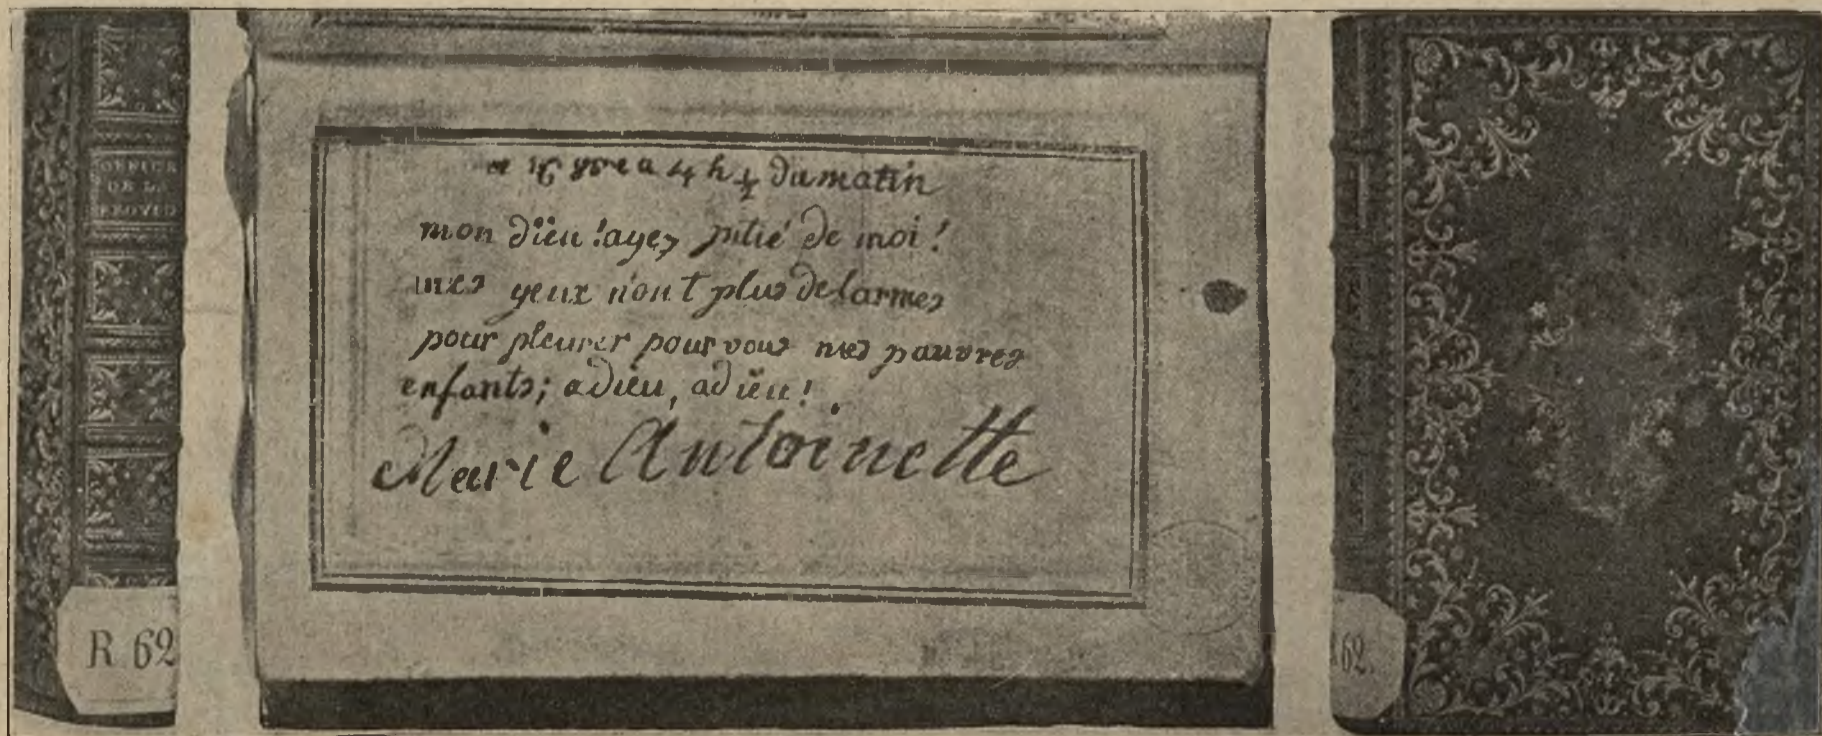 OFFICE
DE LA
PROVID
R 62
ce 16 8bre a 4 h ½ du matin
mon dieu ! ayez pitié de moi !
mes yeux n'ont plus de larmes
pour pleurer pour vous mes pauvres
enfants; adieu, adieu !
Marie Antoinette
62.